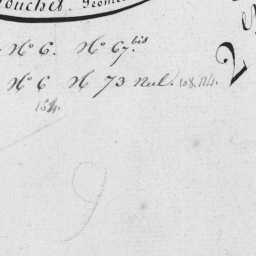 ouchet. Géomè
N° 6. N° 67.bis
N° 6 N° 73 nul. 108. 114.
184.
9
2